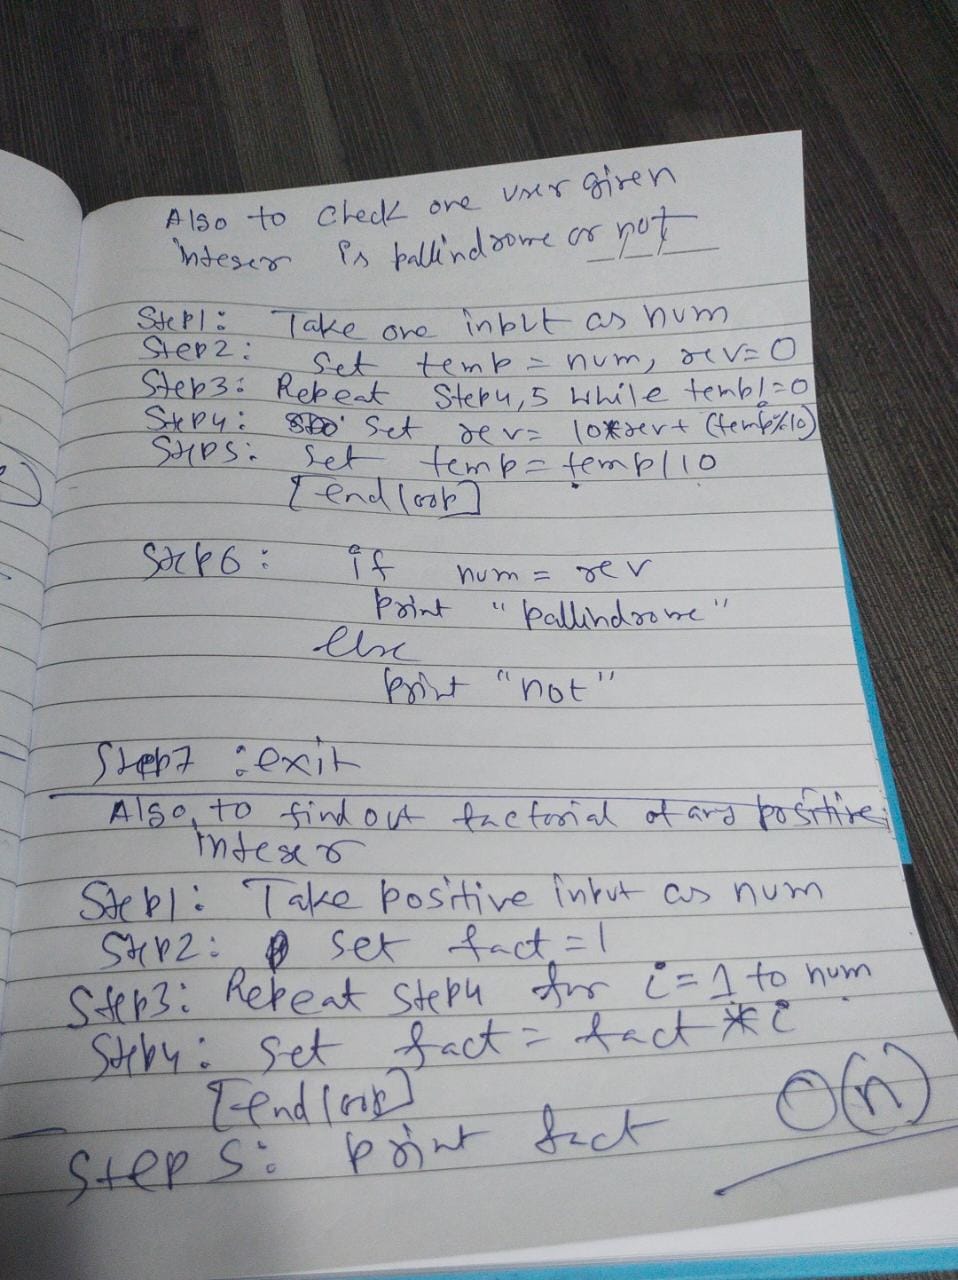 Also to check one user given
integer is pallindrome or not
Step1: Take one input as num
Step2: Set temp = num, rev=0
Step3: Repeat Step4,5 while temp!=0
Step4: Set rev= 10*rev+ (temp%10)
Step5: Set temp = temp/10
[end loop]
Step6: if num = rev
print "pallindrome"
else
print "not"
Step7 : exit
Also, to find out factorial of any positive
integer
Step1: Take positive input as num
Step2: set fact=1
Step3: Repeat step4 for i=1 to num
Step4: set fact = fact * i
[end loop]
O(n)
Step 5: print fact